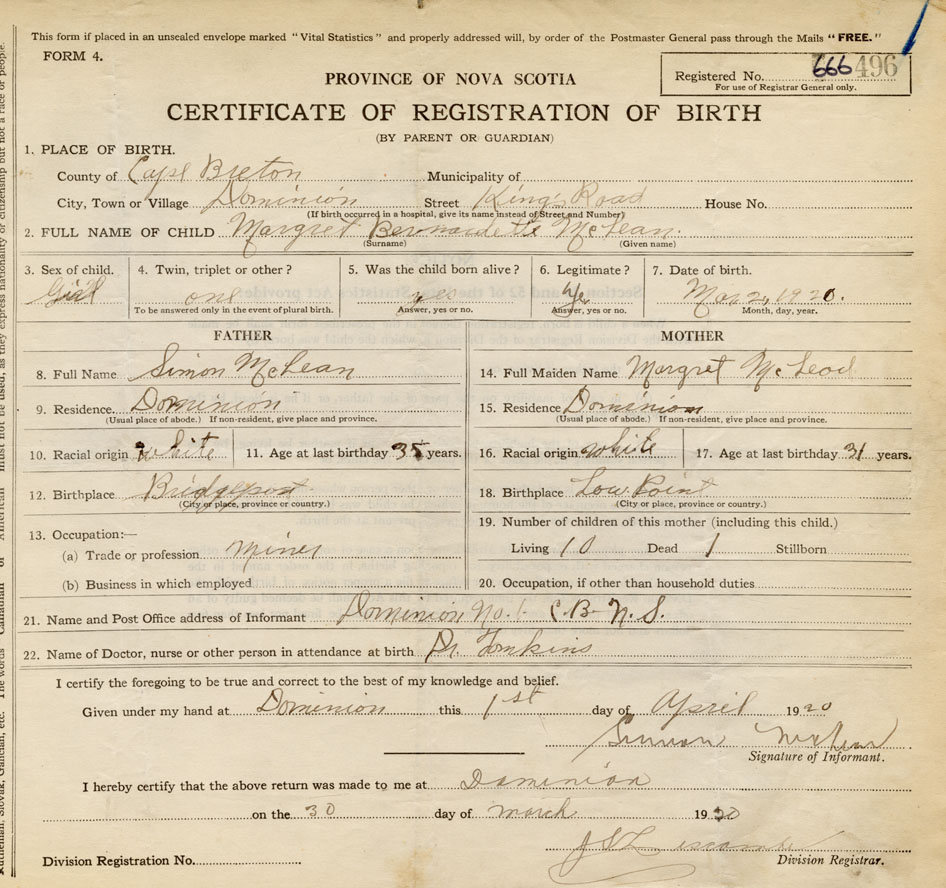 This form if placed in an unsealed envelope marked "Vital Statistics" and properly addressed will, by order of the Postmaster General pass through the Mails "FREE."
FORM 4.
Registered No. 666 496
For use of Registrar General only.
PROVINCE OF NOVA SCOTIA
CERTIFICATE OF REGISTRATION OF BIRTH
(BY PARENT OR GUARDIAN)
1. PLACE OF BIRTH.
County of Cape Breton Municipality of
City, Town or Village Dominion Street King's Road House No.
(If birth occurred in a hospital, give its name instead of Street and Number)
2. FULL NAME OF CHILD Margret Bernadette McLean.
(Surname) (Given name)
3. Sex of child. 4. Twin, triplet or other? 5. Was the child born alive? 6. Legitimate? 7. Date of birth.
Girl one yes yes Mar 2, 1920.
To be answered only in the event of plural birth. Answer, yes or no. Answer, yes or no. Month, day, year.
FATHER MOTHER
8. Full Name Simon McLean 14. Full Maiden Name Margret McLeod
9. Residence. Dominion 15. Residence Dominion
(Usual place of abode.) If non-resident, give place and province. (Usual place of abode.) If non-resident, give place and province.
10. Racial origin white 11. Age at last birthday 35 years. 16. Racial origin white 17. Age at last birthday 31 years.
12. Birthplace Bridgeport 18. Birthplace Low Point
(City or place, province or country.) (City or place, province or country.)
13. Occupation:— 19. Number of children of this mother (including this child.)
(a) Trade or profession Miner Living 10 Dead 1 Stillborn
(b) Business in which employed 20. Occupation, if other than household duties
21. Name and Post Office address of Informant Dominion No. 1 C.B. N.S.
22. Name of Doctor, nurse or other person in attendance at birth Dr. Tomkins
I certify the foregoing to be true and correct to the best of my knowledge and belief.
Given under my hand at Dominion this 1st day of April 1920
Simon McLean
Signature of Informant.
I hereby certify that the above return was made to me at Dominion
on the 30 day of March 1920
Division Registration No. Division Registrar.